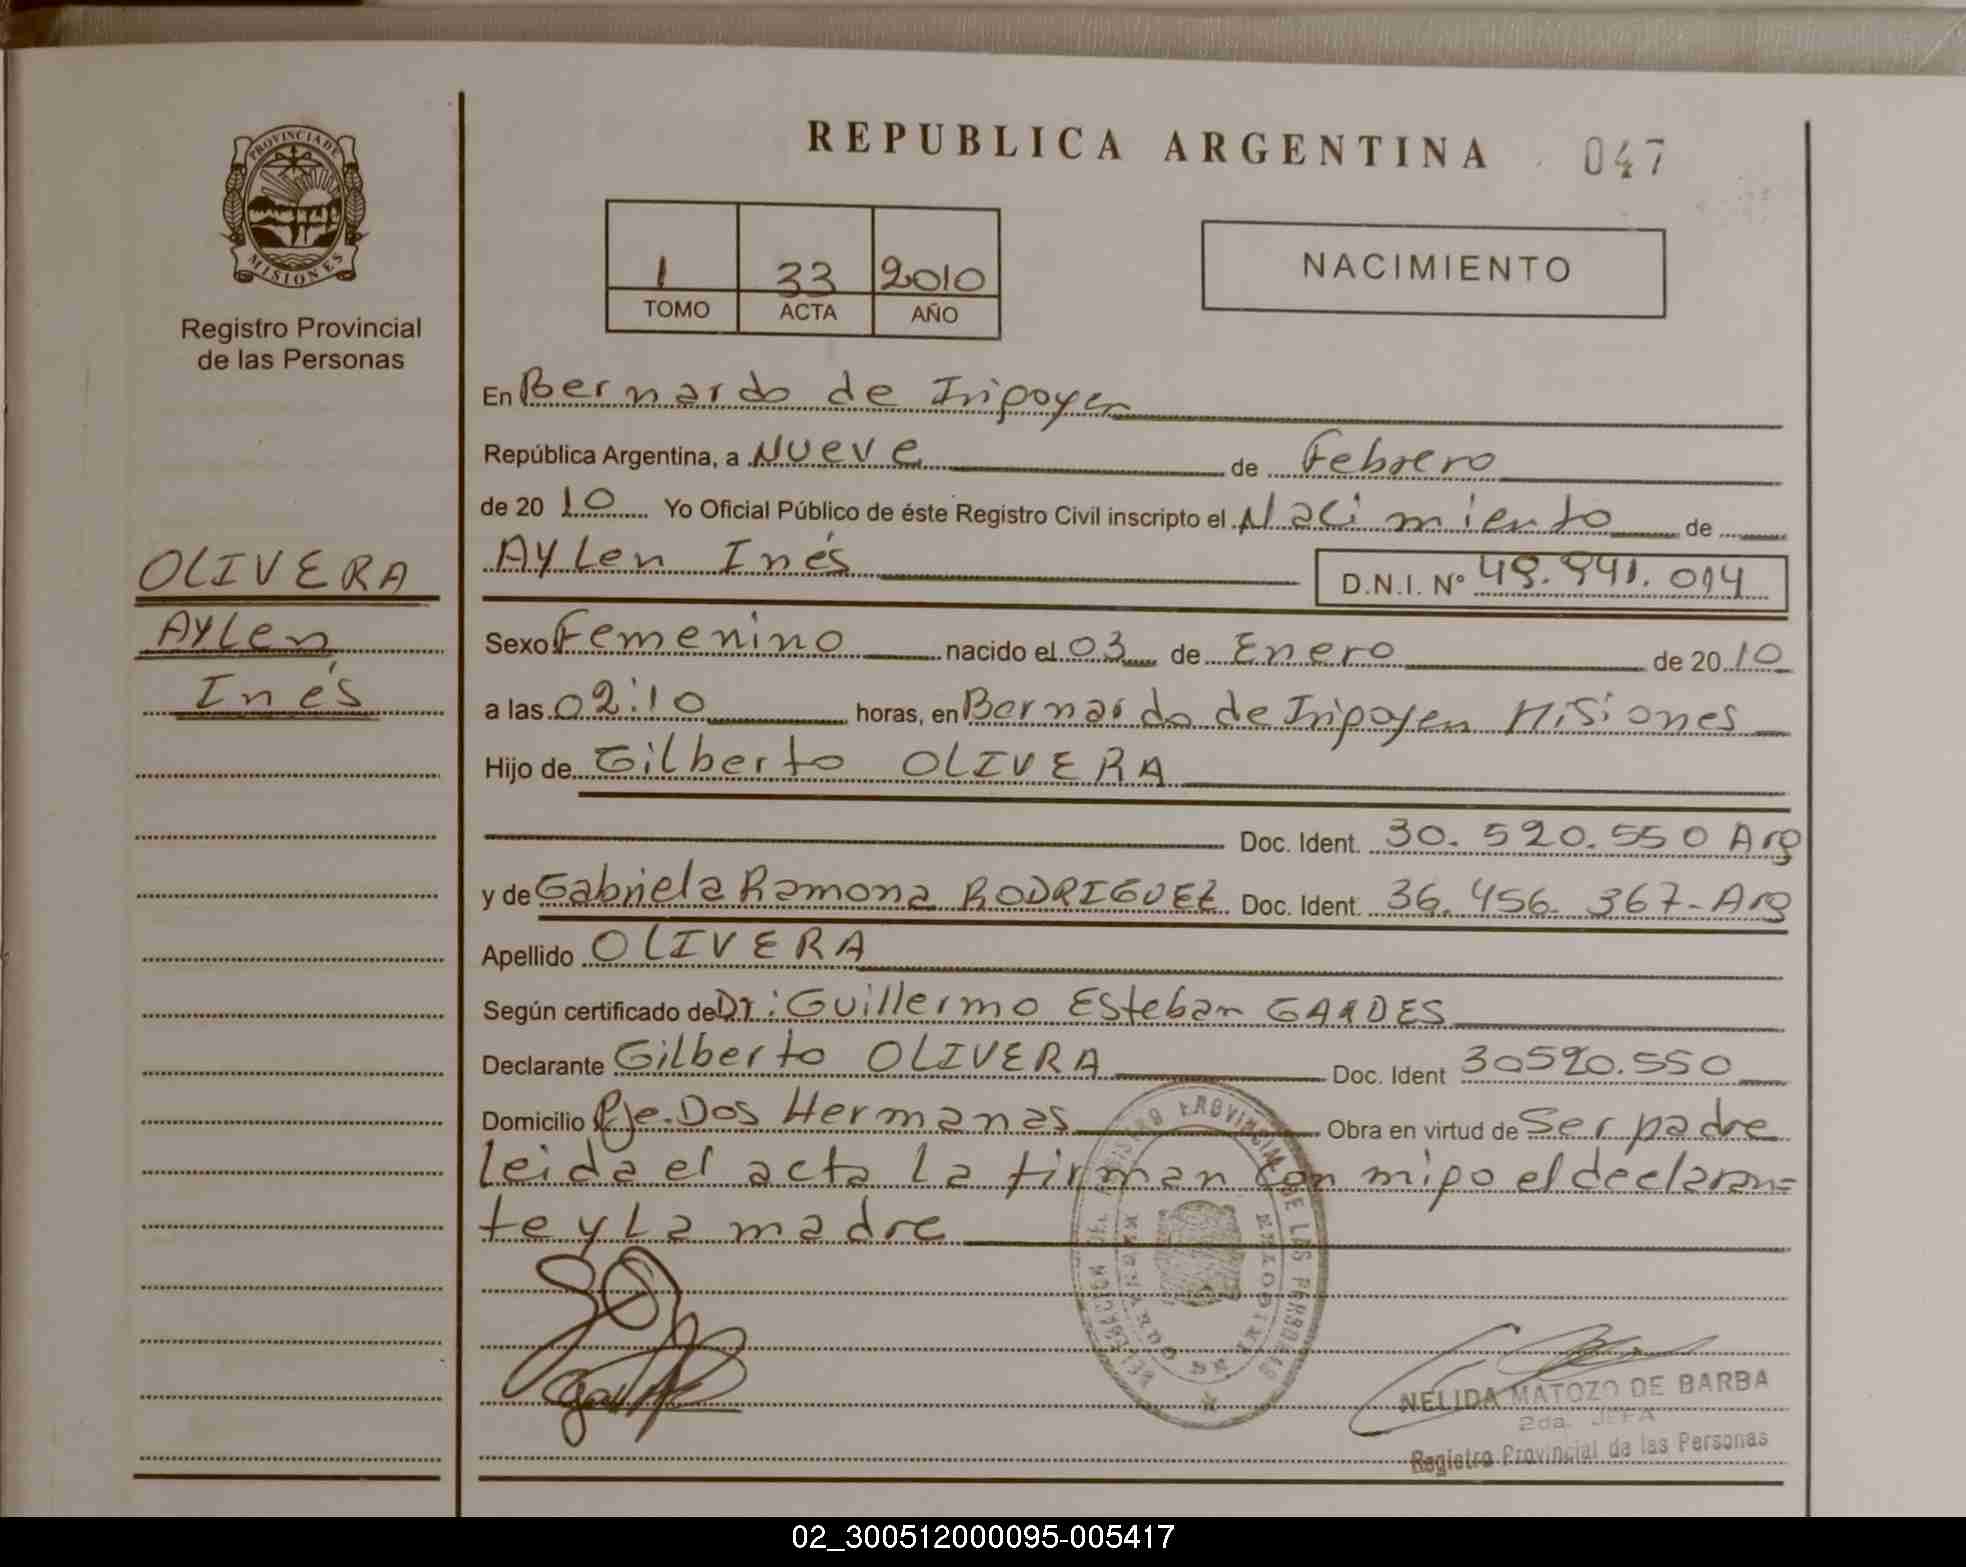 REPUBLICA ARGENTINA 047
PROVINCIA DE
MISIONES
Registro Provincial
de las Personas
1 33 2010
TOMO ACTA AÑO
NACIMIENTO
En Bernardo de Iripoyen
República Argentina, a Nueve de Febrero
de 20 10 Yo Oficial Público de éste Registro Civil inscripto el Nacimiento de
OLIVERA
Aylen
Inés
Aylen Inés D.N.I. Nº
Sexo Femenino nacido el 03 de Enero de 20 10
a las 02:10 horas, en Bernardo de Iripoyen Misiones
Hijo de Gilberto OLIVERA
Doc. Ident. 30.520.550 Arg
y de Gabriela Ramona RODRIGUEZ Doc. Ident. 36.456.367-Arg
Apellido OLIVERA
Según certificado de Dr: Guillermo Esteban
Declarante Gilberto OLIVERA Doc. Ident 30520.550
Domicilio Pje. Dos Hermanas Obra en virtud de Ser padre
Leida el acta la firman con mipo el declaran=
te y La madre
NELIDA MATOZO DE BARBA
2da. JEFA
Registro Provincial de las Personas
02_300512000095-005417